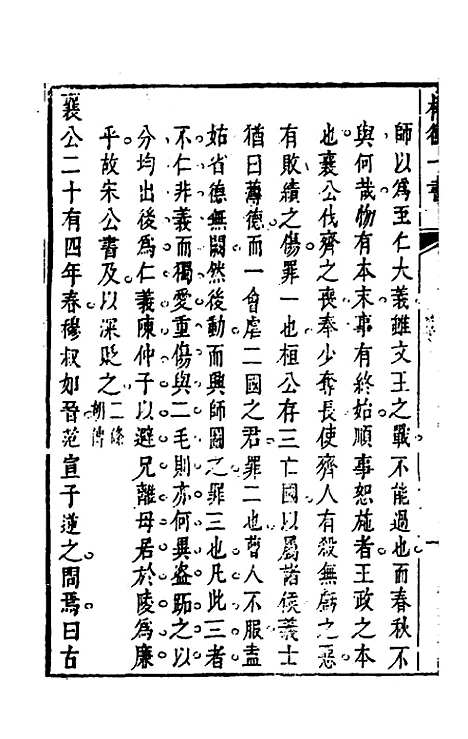 師以爲至仁大義雖文王之戰不能過也而春秋不
與何哉物有本末事有終始順事恕施者王政之本
也襄公伐齊之喪奉少奪長使齊人有殺無虧之惡
有敗績之傷罪一也桓公存三亡國以屬諸侯義士
猶曰薄德而一會虐二國之君罪二也曹人不服盍
姑省德無闕然後動而興師圍之罪三也凡此三者
不仁非義而獨愛重傷與二毛則亦何異盜跖之以
分均出後爲仁義陳仲子以避兄離母居於陵爲廉
乎故宋公書及以深貶之二條胡傳
襄公二十有四年春穆叔如晉范宣子逆之問焉曰古